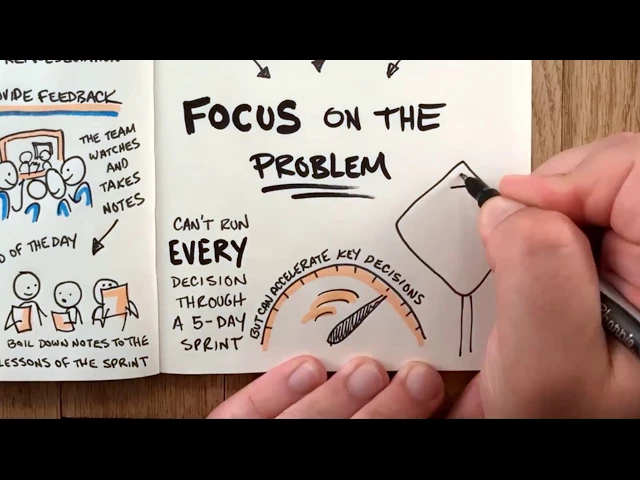 VIDE FEEDBACK
THE TEAM
WATCHES
AND
TAKES
NOTES
OF THE DAY
BOIL DOWN NOTES TO THE
LESSONS OF THE SPRINT
FOCUS ON THE
PROBLEM
CAN'T RUN
EVERY
DECISION
THROUGH
A 5-DAY
SPRINT
BUT CAN ACCELERATE KEY DECISIONS